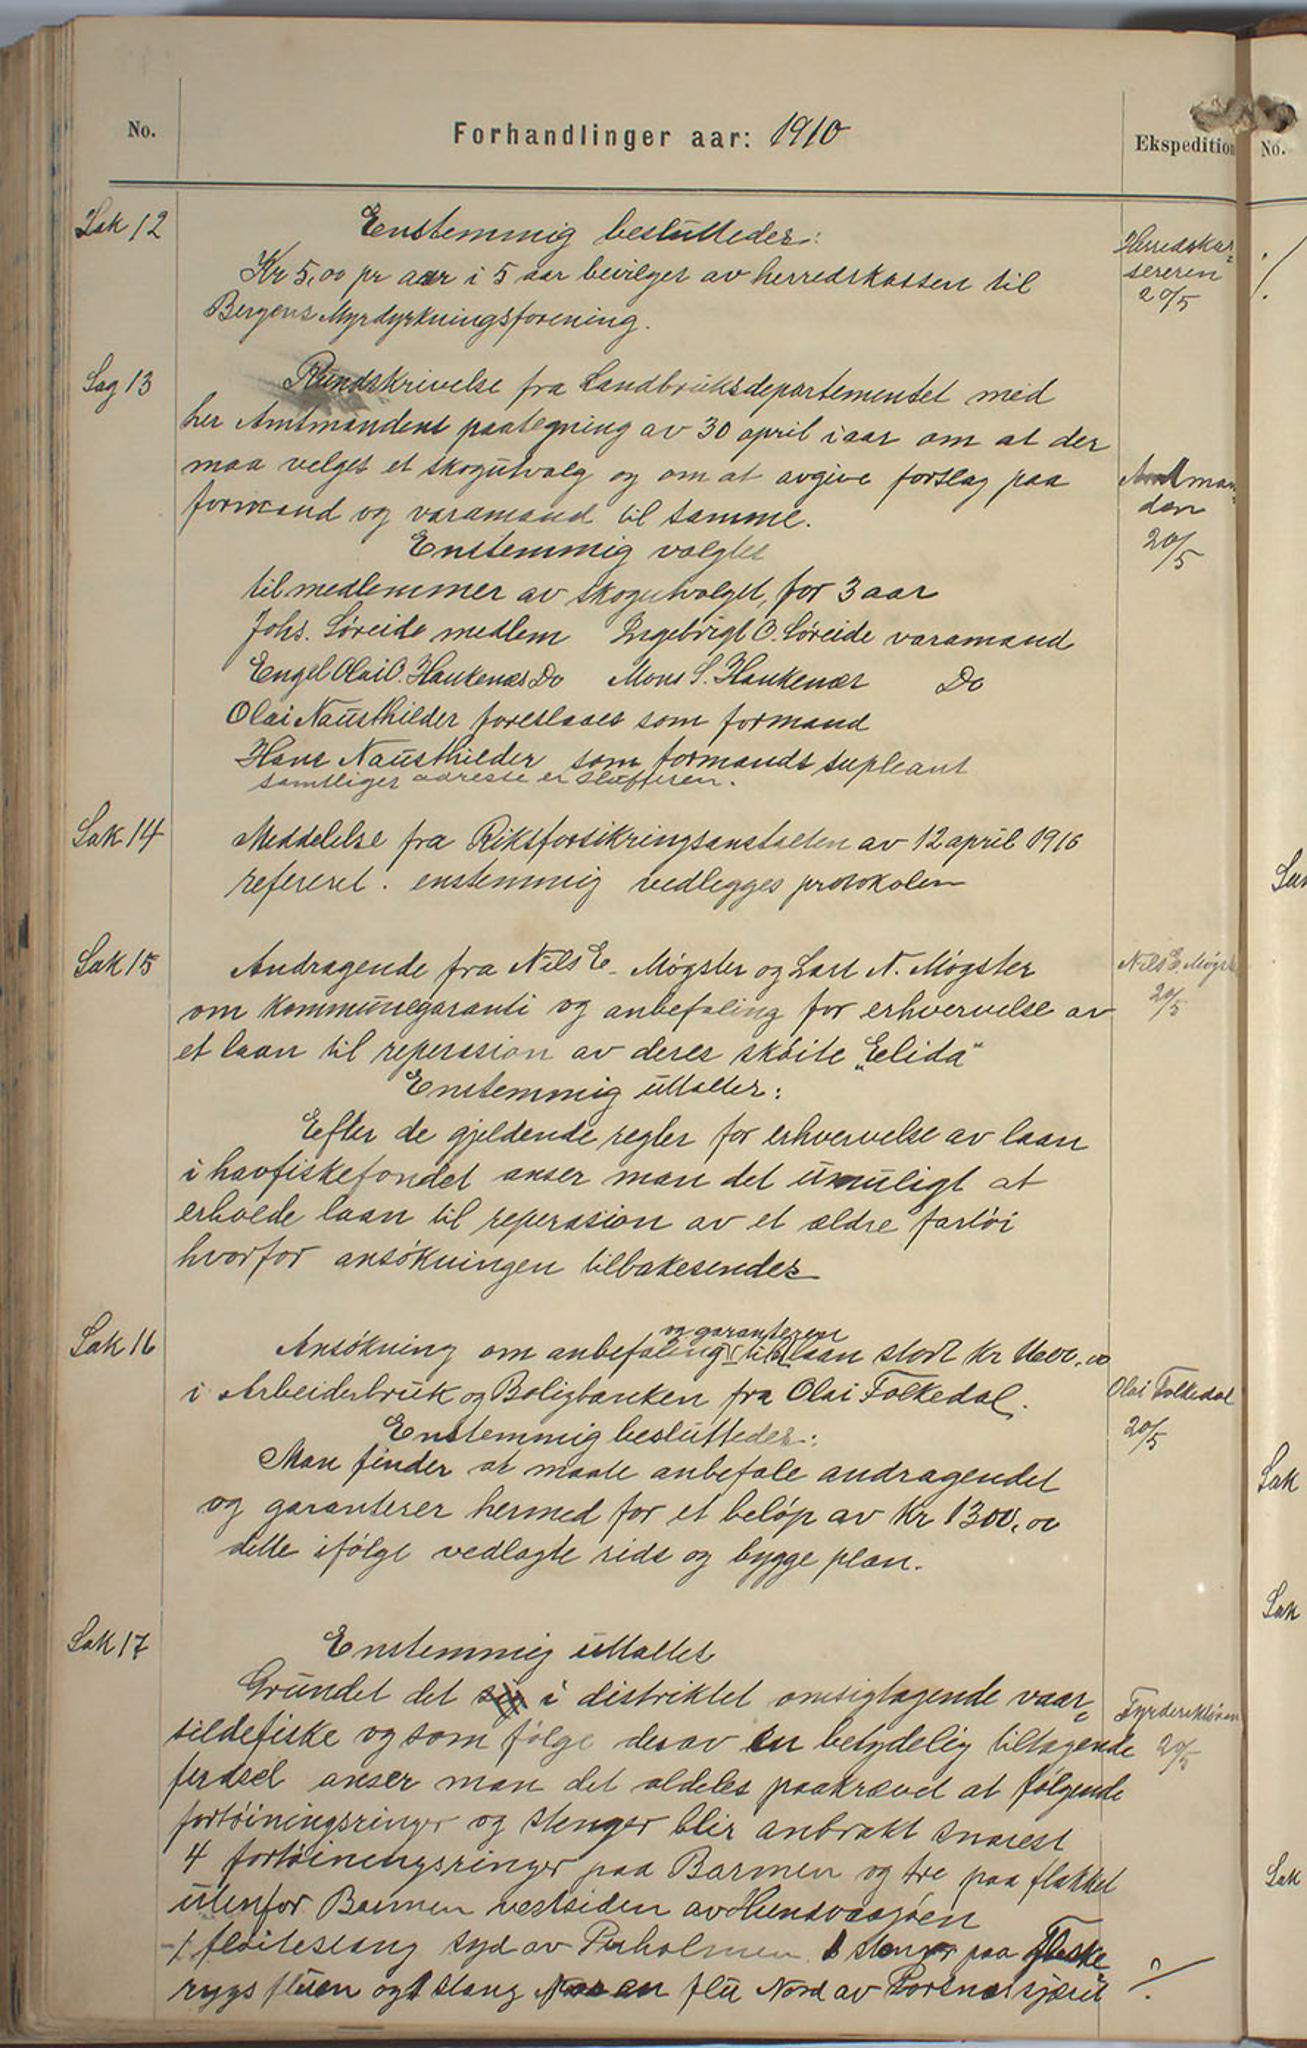 No.
Forhandlinger aar: 1910
Ekspedition
No.
Sak 12
Enstemmig besluttedes:
Kr 5,00 pr aar i 5 aar bevilges av herredskassen til
Bergens Myrdyrkningsforening.
Herredskas=
sereren
20/5
Sag 13
Rundskrivelse fra Landbruksdepartementet med
her Amtmandens paategning av 30 april i aar om at der
maa velges et skogutvalg og om at avgive forslag paa
formand og varamand til samme.
Amtman=
den
20/5
Enstemmig valgtes
til medlemmer av skogutvalget, for 3 aar
Johs. Søreide medlem Ingebrigt O. Søreide varamand
Engel Olai O. Haukenæs Do Mons S. Haukenær Do
Olai Nausthilder foreslaaes som formand
Hans Nausthilder som formands supleant
samtliges adresse er
Sak 14
Meddelelse fra Riksforsikringsanstalten av 12 april 1910
refereret. enstemmig vedlegges protokolen
Sak 15
Andragende fra Nils E. Møgster og Lars N. Møgster
om kommunegaranti og anbefaling for erhvervelse av
et laan til reperasion av deres skøite „Elida“
Nils E. Møgst
20/5
Enstemmig uttaltes:
Efter de gjeldende regler for erhvervelse av laan
i havfiskefondet anser man det umuligt at
erholde laan til reperasion av et ældre fartøi
hvorfor ansøkningen tilbakesendes
Sak 16
og garanteren
Ansøkning om anbefaling til laan stort kr 1600,00
i Arbeiderbruk og Boligbanken fra Olai Folkedal.
Olai Folkedal
20/5
Enstemmig besluttedes:
Man finder at maate anbefale andragendet
og garanterer hermed for et beløp av kr 1300,00
dette ifølge vedlagte rids og bygge plan.
Sak 17
Enstemmig uttaltes
Grundet det i distriktet omsigtagende vaar=
sildefiske og som følge derav en betydelig tiltagende
ferdsel anser man det aldeles paakrævet at følgende
fortøiningsringer og stenger blir anbrakt snarest
Fyrdirektøren
20/5
4 fortøiningsringer paa Barmen og tre paa flakket
utenfor Barmen vestsiden av Hundvaagøen
1 fløitestang syd av Perholmen stenger paa Fleske
rygs fluen og 1 stang Nær en flu Nord av
Sak
Sak
Sak